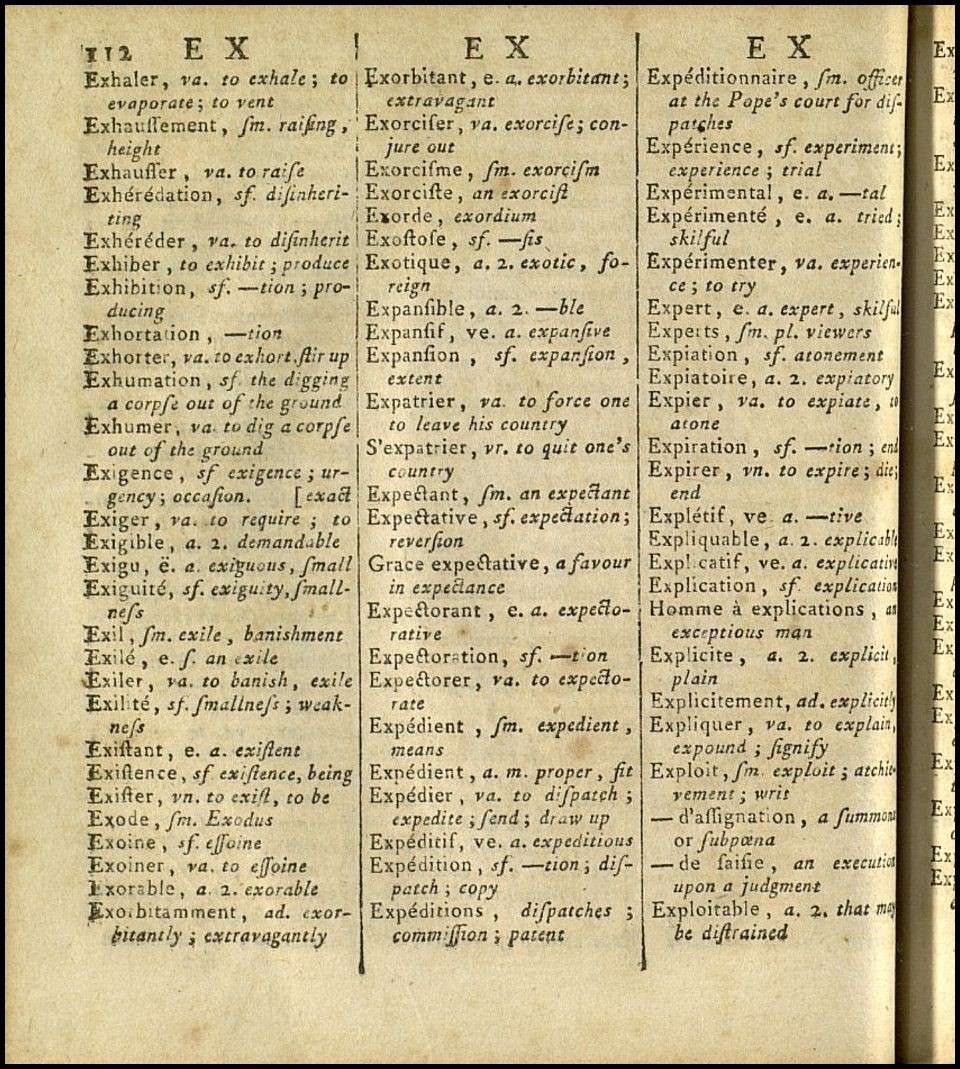 112 E X
Exhaler, va. to exhale; to
evaporate; to vent
Exhauſſement, ſm. raiſing,
height
Exhauſſer, va. to raiſe
Exhérédation, sf. diſinheri-
ting
Exhéréder, va. to diſinherit
Exhiber, to exhibit; produce
Exhibition, sf. —tion; pro-
ducing
Exhortation, —tion
Exhorter, va. to exhort, ſtir up
Exhumation, sf. the digging
a corpſe out of the ground
Exhumer, va. to dig a corpſe
out of the ground
Exigence, sf exigence; ur-
gency; occaſion. [exact
Exiger, va. to require; to
Exigible, a. 2. demandable
Exigu, ë. a. exiguous, ſmall
Exiguité, sf. exiguity, ſmall-
neſs
Exil, ſm. exile, banishment
Exilé, e. ſ. an exile
Exiler, va. to banish, exile
Exilité, sf. ſmallneſs; weak-
neſs
Exiſtant, e. a. exiſtent
Exiſtence, sf exiſtence, being
Exiſter, vn. to exiſt, to be
Exode, ſm. Exodus
Exoine, sf. eſſoine
Exoiner, va. to eſſoine
Exorable, a. 2. exorable
Exorbitamment, ad. exor-
bitantly; extravagantly
E X
Exorbitant, e. a. exorbitant;
extravagant
Exorciſer, va. exorciſe; con-
jure out
Exorciſme, ſm. exorciſm
Exorciſte, an exorciſt
Exorde, exordium
Exoſtoſe, sf. —ſis
Exotique, a. 2. exotic, fo-
reign
Expanſible, a. 2. —ble
Expanſif, ve. a. expanſive
Expanſion, sf. expanſion,
extent
Expatrier, va. to force one
to leave his country
S'expatrier, vr. to quit one's
country
Expectant, ſm. an expectant
Expectative, sf. expectation;
reverſion
Grace expectative, a favour
in expectance
Expectorant, e. a. expecto-
rative
Expectoration, sf. —tion
Expectorer, va. to expecto-
rate
Expédient, ſm. expedient,
means
Expédient, a. m. proper, fit
Expédier, va. to diſpatch;
expedite; ſend; draw up
Expéditif, ve. a. expeditious
Expédition, sf. —tion; diſ-
patch; copy
Expéditions, diſpatches;
commiſſion; patent
E X
Expéditionnaire, ſm. officer
at the Pope's court for diſ-
patches
Expérience, sf. experiment;
experience; trial
Expérimental, e. a. —tal
Expérimenté, e. a. tried;
skilful
Expérimenter, va. experien-
ce; to try
Expert, e. a. expert, skilful
Experts, ſm. pl. viewers
Expiation, sf. atonement
Expiatoire, a. 2. expiatory
Expier, va. to expiate, to
atone
Expiration, sf. —tion; end
Expirer, vn. to expire; die;
end
Explétif, ve. a. —tive
Expliquable, a. 2. explicable
Explicatif, ve. a. explicative
Explication, sf. explication
Homme à explications, an
exceptious man
Explicite, a. 2. explicit,
plain
Explicitement, ad. explicitly
Expliquer, va. to explain,
expound; ſignify
Exploit, ſm. exploit; atchie-
vement; writ
— d'aſſignation, a ſummons
or ſubpœna
— de ſaiſie, an execution
upon a judgment
Exploitable, a. 2. that may
be diſtrained